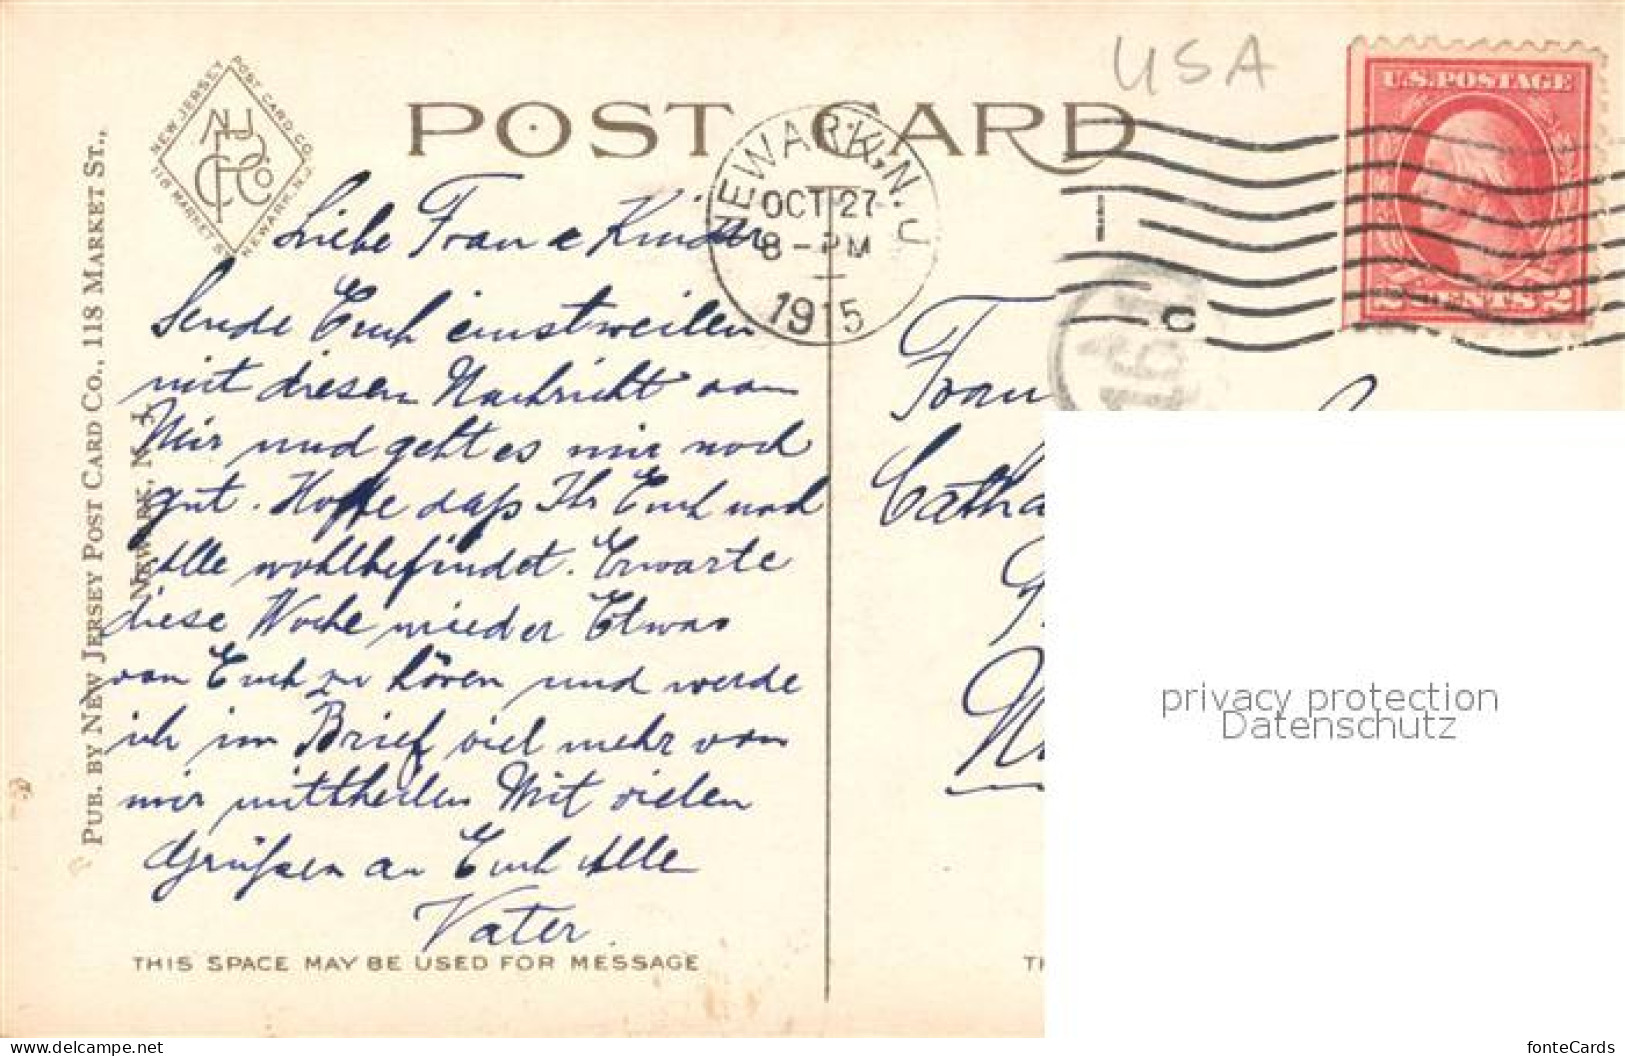 USA
POST CARD
U.S. POSTAGE
2 CENTS 2
NEW JERSEY POST CARD CO.
118 MARKET ST. NEWARK, N.J.
NJ
P
C C Co
NEWARK, N.J.
OCT 27
8 - PM
1915
C
PUB. BY NEW JERSEY POST CARD CO., 118 MARKET ST.,
NEWARK, N. J.
Liebe Frau & Kinder
Sende Euch einstweilen
mit diesen Nachricht von
Mir und geht es mir noch
gut. Hoffe daß Ihr Euch noch
Alle wohlbefindet. Erwarte
diese Woche wieder Etwas
von Euch zu hören und werde
ich im Brief viel mehr von
mir mittheilen Mit vielen
Grüßen an Euch Alle
Vater.
THIS SPACE MAY BE USED FOR MESSAGE
Frau
Catha
TH
privacy protection
Datenschutz
www.delcampe.net
fonteCards